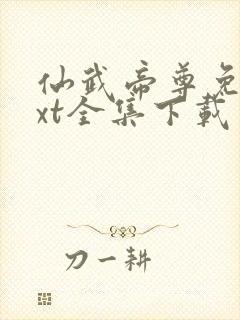 仙武帝尊免
xt全集下载
刀一耕